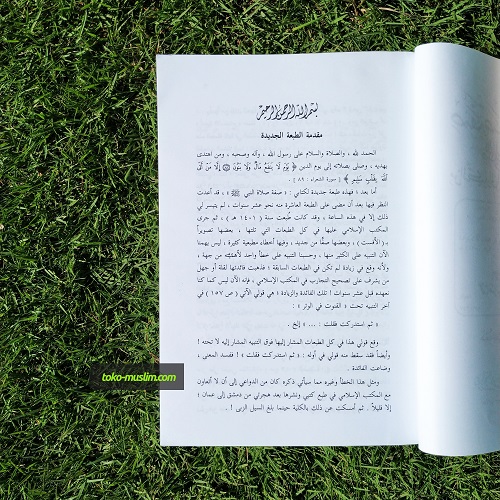 بسم الله الرحمن الرحيم
مقدمة الطبعة الجديدة
الحمد لله ، والصلاة والسلام على رسول الله ، وآله وصحبه ، ومن اهتدى
بهديه ، وصلى بصلاته إلى يوم الدين ﴿ يَوْمَ لَا يَنفَعُ مَالٌ وَلَا بَنُونَ ۝ إِلَّا مَنْ أَتَى
اللَّهَ بِقَلْبٍ سَلِيمٍ ﴾ ( سورة الشعراء : ٨٩ ) .
أما بعد ؛ فهذه طبعة جديدة لكتابي : « صفة صلاة النبي ﷺ » ، قد أعدت
النظر فيها بعد أن مضى على الطبعة العاشرة منه نحو عشر سنوات ، لم يتيسر لي
ذلك إلا في هذه الساعة ، وقد كانت طبعت سنة ( ١٤٠١ هـ ) ، ثم جرى
المكتب الإسلامي عليها في كل الطبعات التي تلتها ، بعضها تصويراً
( بالأفست ) ، وبعضها صفًّا من جديد ، وفيها أخطاء مطبعية كثيرة ، ليس يهمنا
الآن التنبيه على الكثير منها ، وحسبنا التنبيه على خطأ واحد لأهميته من جهة ،
ولأنه وقع في زيادة لم تكن في الطبعات السابقة ؛ فذهبت فائدتها لقلة أو جهل
من يشرف على تصحيح التجارب في المكتب الإسلامي ، فإنه الآن ليس كما كنا
نعهده قبل عشر سنوات ! تلك الفائدة والزيادة ؛ هي قولي الآتي ( ص ١٥٧ ) في
آخر التنبيه تحت « القنوت في الوتر » :
« ثم استدركت فقلت : ... » إلخ .
وقع قولي هذا في كل الطبعات المشار إليها فوق التنبيه المشار إليه لا تحته !
وأيضاً فقد سقط منه قولي في أوله : « ثم استدركت فقلت » ! ؛ ففسد المعنى ،
وضاعت الفائدة .
ومثل هذا الخطأ وغيره مما سيأتي ذكره كان من الدواعي إلى أن لا أتعاون
مع المكتب الإسلامي في طبع كتبي ونشرها بعد هجرتي من دمشق إلى عمان ؛
إلا قليلاً . ثم أمسكت عن ذلك بالكلية حينما بلغ السيل الزبى ! .
toko-muslim.com